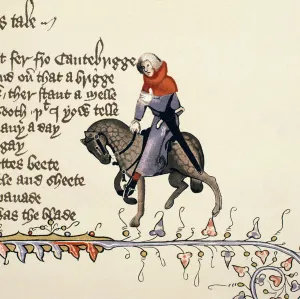 s tale
t fer fro Cantebrigge
nd on that a brigge
, ther stant a melle
sooth þt I yow telle
any a day
gay
ettes beete
tle and sheete
pauade
as the blade